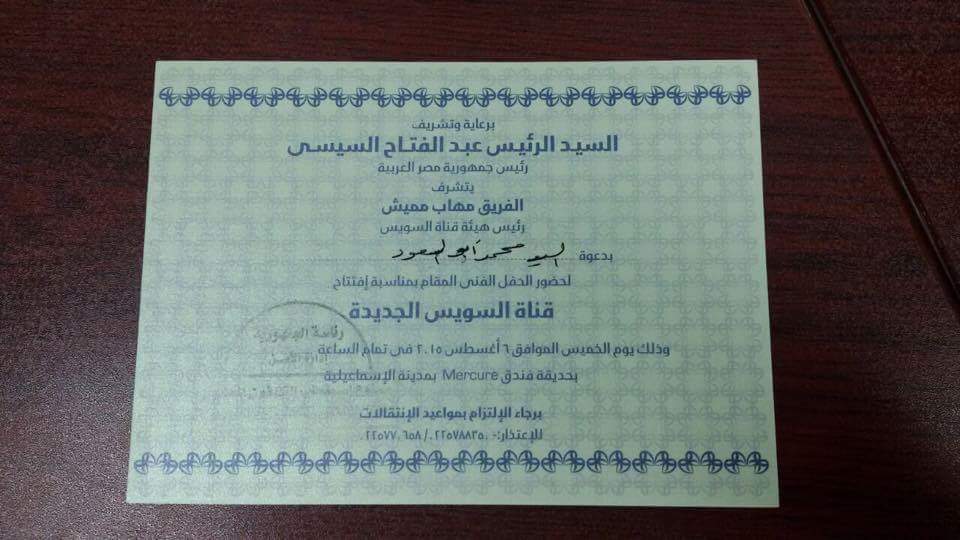 برعاية وتشريف
السيد الرئيس عبد الفتاح السيسى
رئيس جمهورية مصر العربية
يتشرف
الفريق مهاب مميش
رئيس هيئة قناة السويس
بدعوة السيد محمد أبو السعود
لحضور الحفل الفنى المقام بمناسبة إفتتاح
قناة السويس الجديدة
رئاسة الجمهورية
إدارة الأمن
وذلك يوم الخميس الموافق ٦ أغسطس ٢٠١٥ فى تمام الساعة
بحديقة فندق Mercure بمدينة الإسماعيلية
برجاء الإلتزام بمواعيد الإنتقالات
للإعتذار:- ٠٢٢٥٧٨٨٣٥٠ / ٠٢٢٥٧٧٠٦٥٨